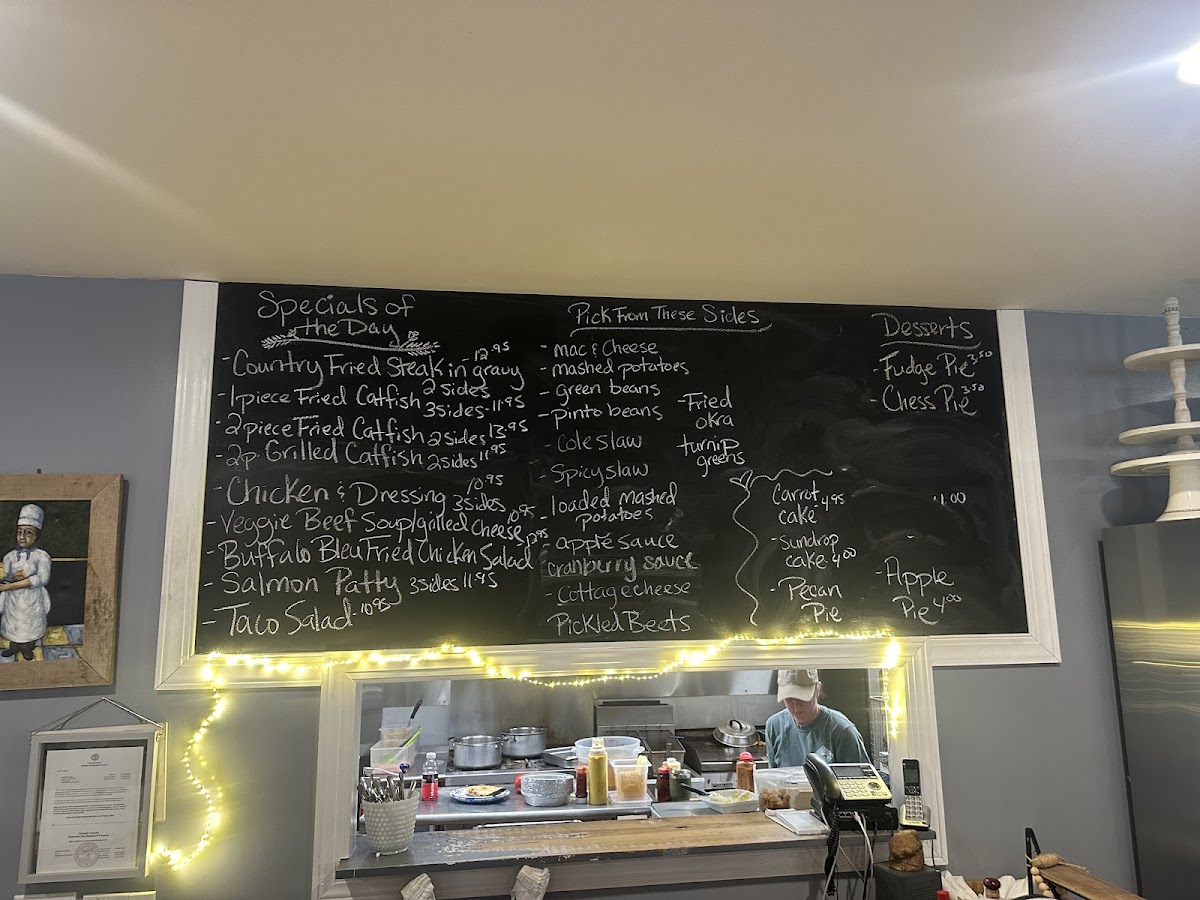 Specials of
the Day
- Country Fried Steak in gravy 12.95
2 sides
- 1 piece Fried Catfish 3 sides - 11.95
- 2 piece Fried Catfish 2 sides 13.95
- 2p. Grilled Catfish 2 sides 11.95
- Chicken & Dressing 3 sides 10.95
- Veggie Beef Soup/grilled cheese 10.95
- Buffalo Bleu Fried Chicken Salad 12.95
- Salmon Patty 3 sides 11.95
- Taco Salad - 10.95
Pick From These Sides
- mac & Cheese
- mashed potatoes
- green beans
- pinto beans
- Cole slaw
- Spicy slaw
- loaded mashed
potatoes
- apple sauce
cranberry sauce
- Cottage cheese
Pickled Beets
- Fried
okra
turnip
greens
Desserts
- Fudge Pie 3.50
- Chess Pie 3.50
Carrot 4.95
cake
- Sundrop
cake 4.00
- Pecan
Pie
- Apple
Pie 4.00